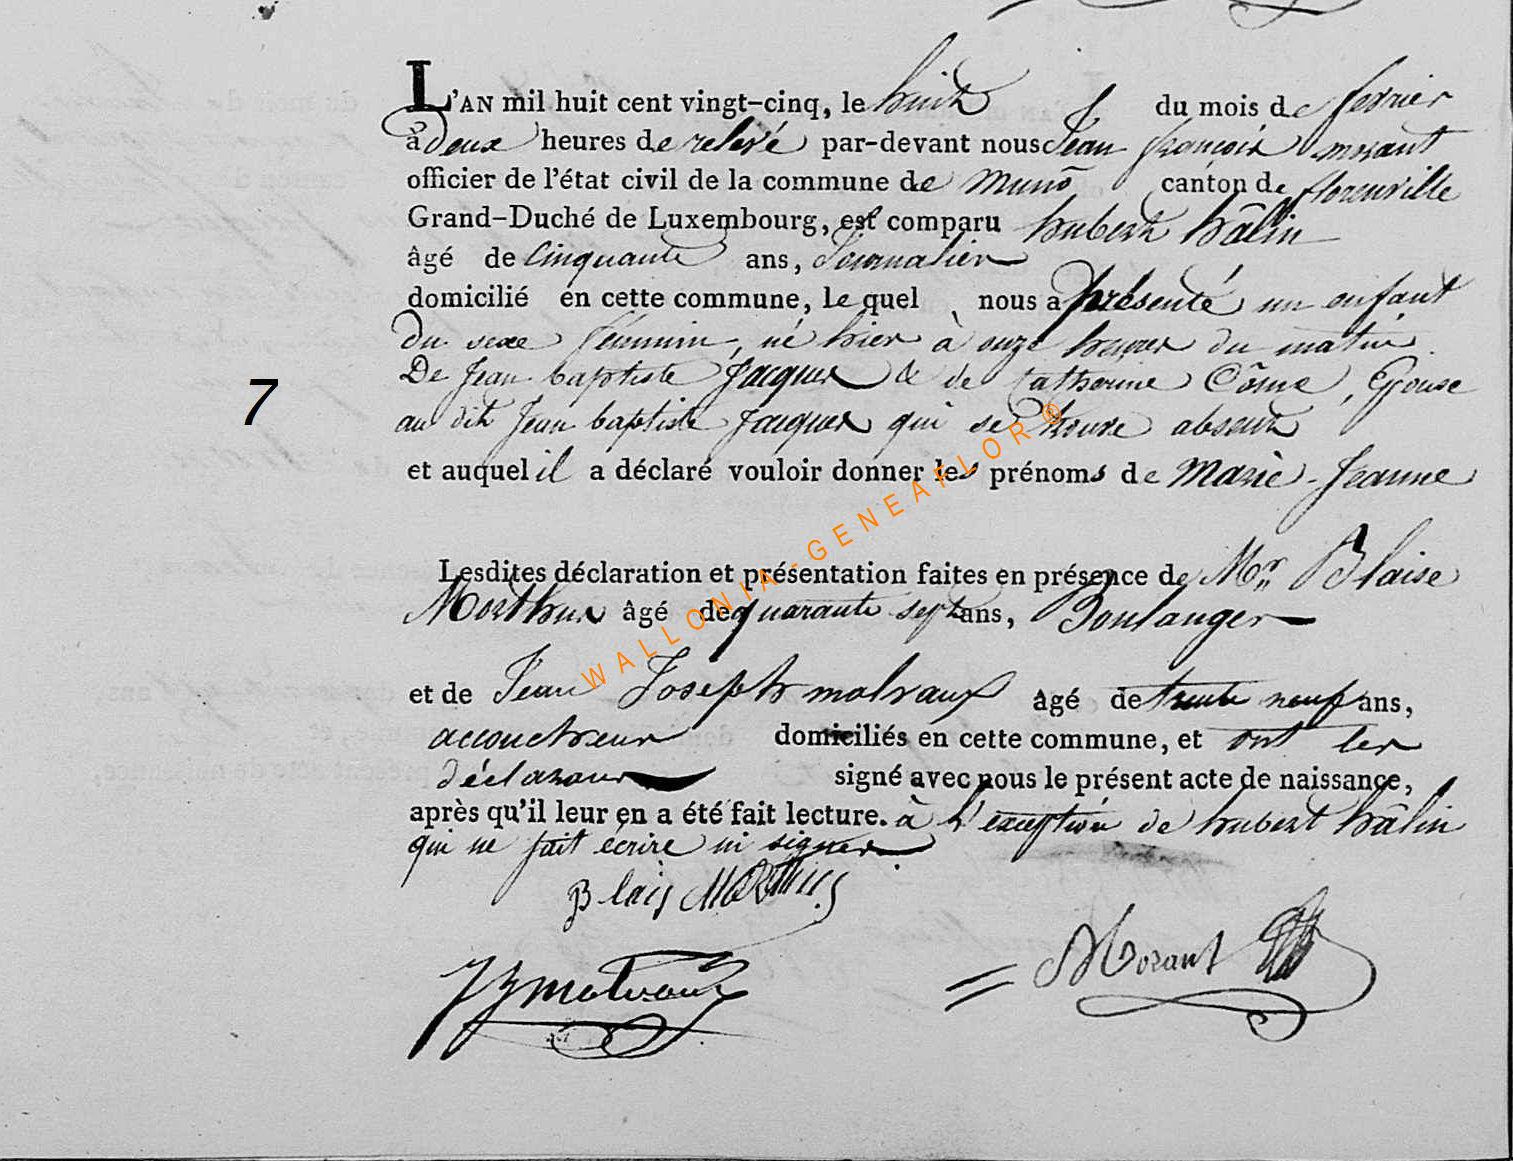 L'AN mil huit cent vingt-cinq, le huit du mois de fevrier
à deux heures de relevé par-devant nous Jean françois morant
officier de l'état civil de la commune de muno canton de florenville
Grand-Duché de Luxembourg, est comparu hubert hâlin
âgé de cinquante ans, Journalier
domicilié en cette commune, le quel nous a présenté un enfant
du sexe féminin, né hier à onze heures du matin
De Jean baptiste Jacques & de Catherine Cômé, Epouse
7
au dit Jean baptiste Jacques qui se trouve absent
et auquel il a déclaré vouloir donner les prénoms de Marie-Jeanne
Lesdites déclaration et présentation faites en présence de Mr Blaise
Morthus âgé de quarante sept ans, Boulanger
et de Jean Joseph malvaux agé de trente neuf ans,
accoucheur domiciliés en cette commune, et ont les
déclarans signé avec nous le présent acte de naissance,
après qu'il leur en a été fait lecture. à l'exception de hubert hâlin
qui ne sait écrire ni signer
Blais
JJ malvaux
Morant
WALLONIA-GENEAFLOR®